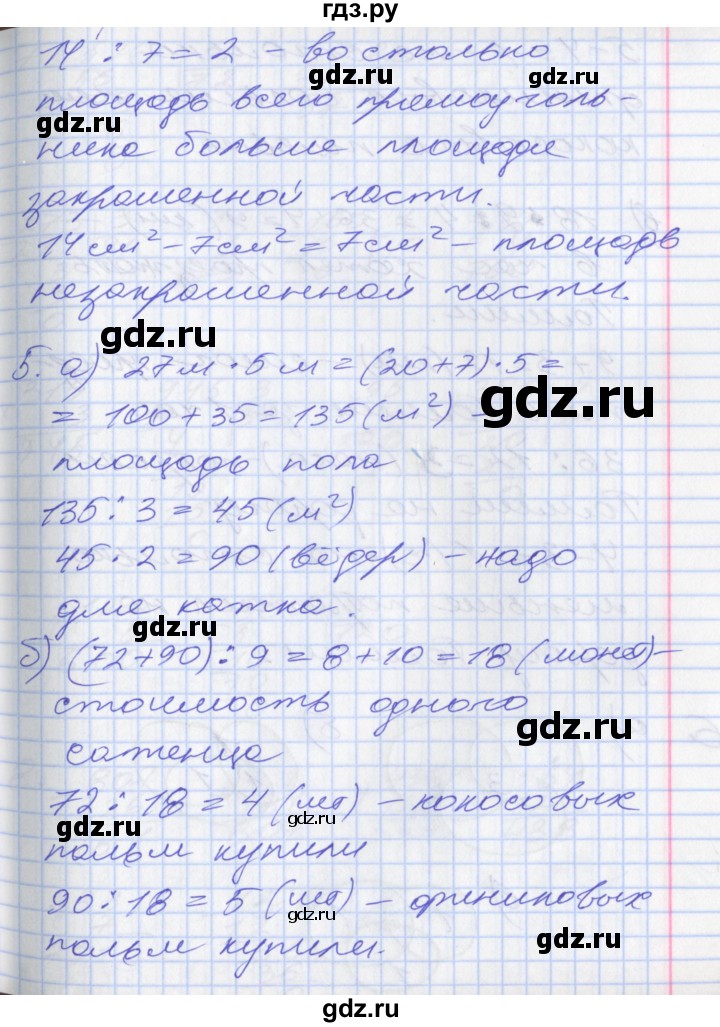 гдз.ру
14 : 7 = 2 - во столько
площадь всего прямоуголь-
gdz.ru
gdz.ru
ника больше площади
закрашенной части.
gdz.ru
gdz.ru
14 см² - 7 см² = 7 см² - площадь
незакрашенной части.
gdz.ru
5. а) 27 м · 5 м = (20+7) · 5 =
= 100 + 35 = 135 (м²) -
gdz.ru
площадь пола
135 : 3 = 45 (м²)
gdz.ru
gdz.ru
45 · 2 = 90 (вёдер) - надо
для катка.
gdz.ru
б) (72+90) : 9 = 8 + 10 = 18 (монет) -
стоимость одного
gdz.ru
саженца
72 : 18 = 4 (шт) - кокосовых
gdz.ru
gdz.ru
gdz.ru
пальм купили
90 : 18 = 5 (шт) - финиковых
gdz.ru
пальм купили.
gdz.ru
gdz.ru